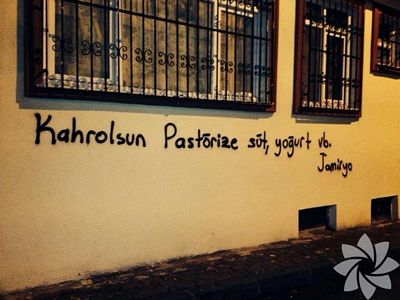 Kahrolsun Pastörize süt, yoğurt vb.
Jamiryo